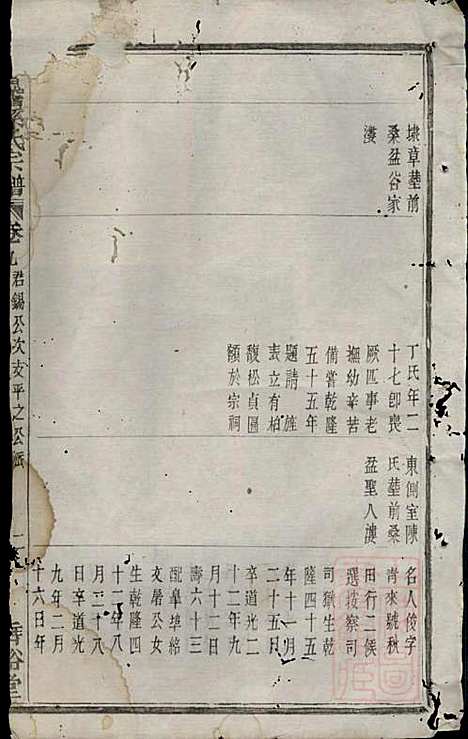 埭草塟前
桑盆谷家
漊
丁氏年二
十七卽喪
厥匹事老
撫幼辛苦
備嘗乾隆
五十五年
題請旌
表立有柏
馥松貞匾
額於宗祠
東側室陳
氏塟前桑
盆聖人漊
名人俊字
青來號秋
田行二候
選按察司
司獄生乾
隆四十五
年十一月
二十五日
卒道光二
十二年九
月十二日
壽六十三
配阜埠
文學公女
生乾隆四
十二年八
月二十八
日卒道光
九年二月
十六日年
孫氏宗譜
卷九
君錫公次支平之公派